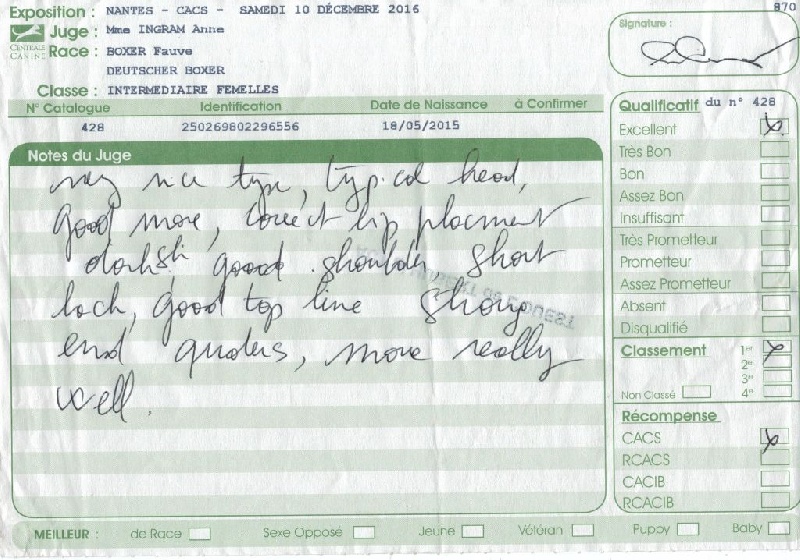 Exposition : NANTES - CACS - SAMEDI 10 DÉCEMBRE 2016
870
Juge : Mme INGRAM Anne
CENTRALE CANINE
Race : BOXER Fauve
DEUTSCHER BOXER
Classe : INTERMEDIAIRE FEMELLES
Signature :
N° Catalogue Identification Date de Naissance à Confirmer
428 250269802296556 18/05/2015
Notes du Juge
very nice type, typical head,
good nose, correct lip placment
good shoulder short
back, good top line strong
end quaters, move really
well.
Qualificatif du n° 428
Excellent
Très Bon
Bon
Assez Bon
Insuffisant
Très Prometteur
Prometteur
Assez Prometteur
Absent
Disqualifié
Classement 1er
2e
3e
Non Classé 4e
Récompense
CACS
RCACS
CACIB
RCACIB
MEILLEUR : de Race Sexe Opposé Jeune Vétéran Puppy Baby